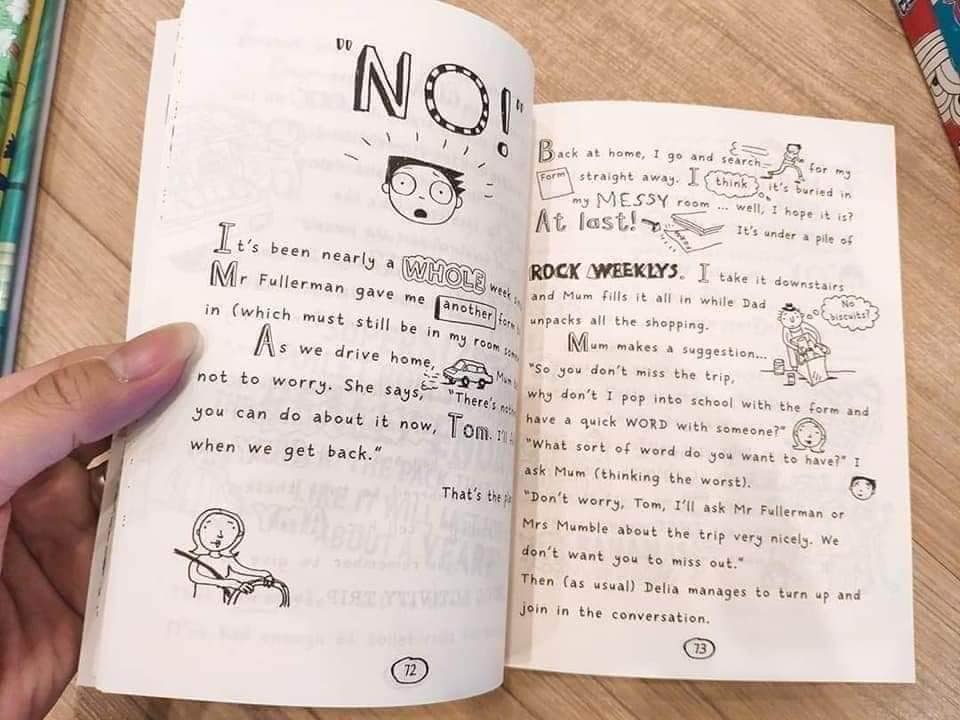 "NO!"
It's been nearly a WHOLE week
Mr Fullerman gave me another form
in (which must still be in my room
As we drive home, Mum
not to worry. She says, "There's
you can do about it now, Tom. I'll
when we get back."
That's the
72
Back at home, I go and search for my
Form straight away. I think it's buried in
my MESSY room ... well, I hope it is?
At last! It's under a pile of
ROCK WEEKLYS. I take it downstairs
and Mum fills it all in while Dad
No
biscuits?
unpacks all the shopping.
Mum makes a suggestion...
"So you don't miss the trip,
why don't I pop into school with the form and
have a quick WORD with someone?"
"What sort of word do you want to have?" I
ask Mum (thinking the worst).
"Don't worry, Tom, I'll ask Mr Fullerman or
Mrs Mumble about the trip very nicely. We
don't want you to miss out."
Then (as usual) Delia manages to turn up and
join in the conversation.
73